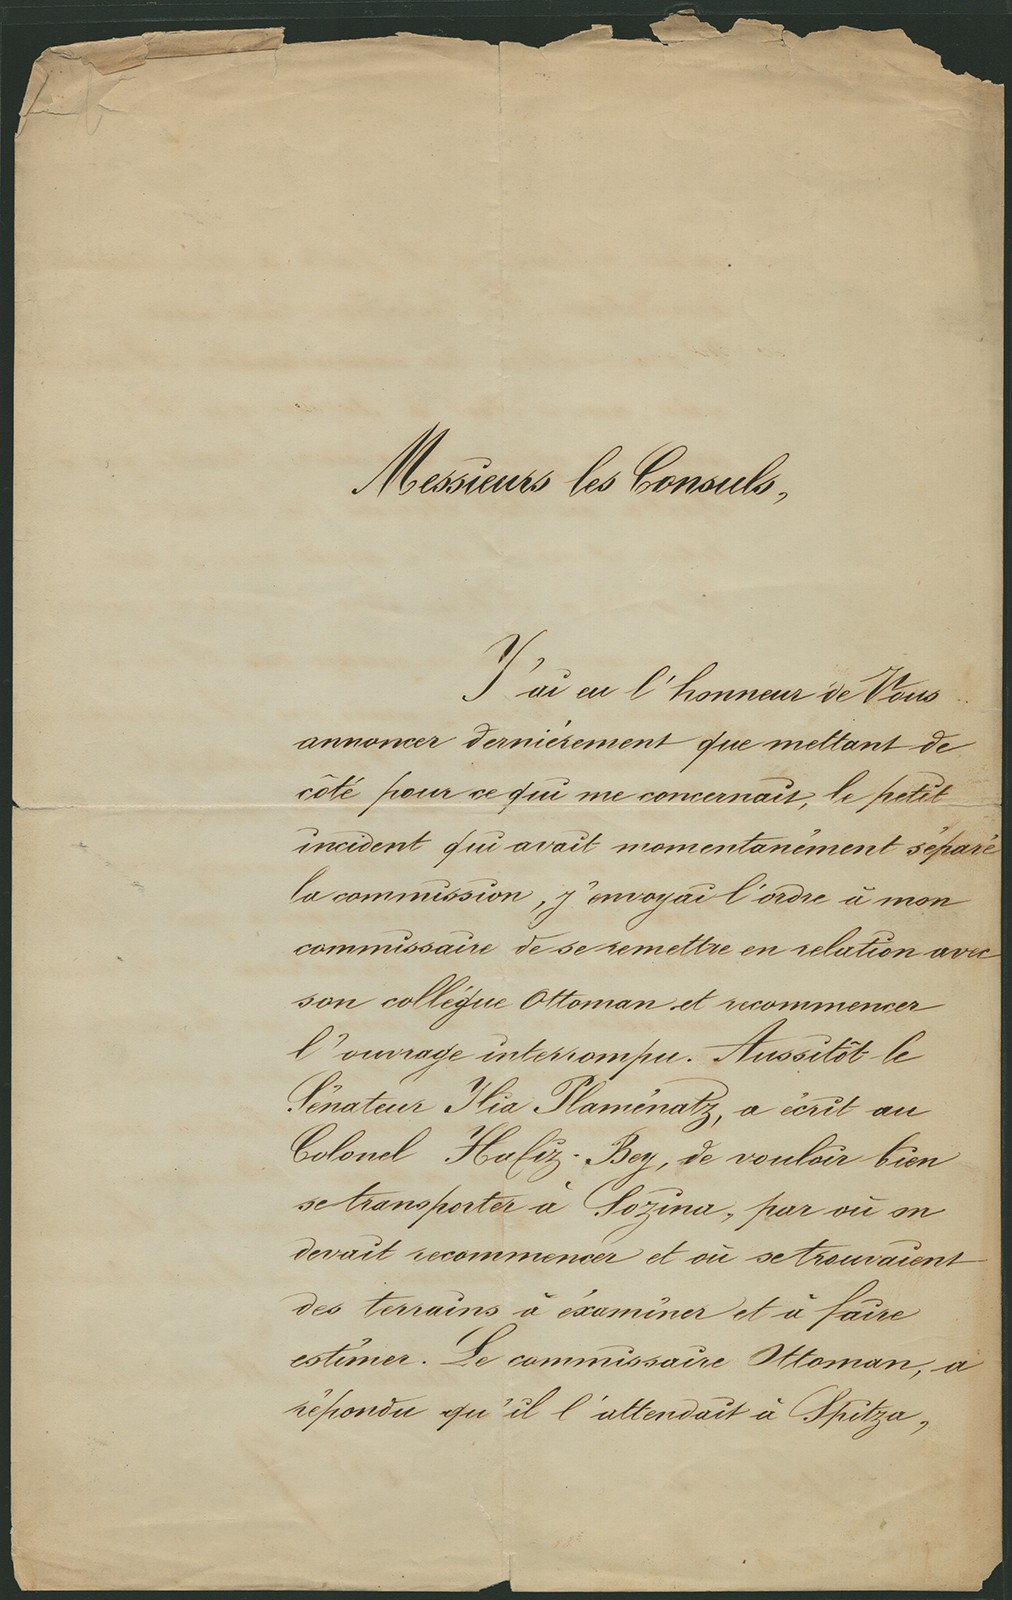 Messieurs les Consuls,
J'ai eu l'honneur de Vous
annoncer derniérement que mettant de
côté pour ce qui me concernait, le petit
incident qui avait momentanément séparé
la commission, j'envoyai l'ordre à mon
commissaire de se remettre en relation avec
son collégue Ottoman et recommencer
l'ouvrage interrompu. Aussitôt le
Sénateur Ilia Plaménatz, a écrit au
Colonel Hafiz-Bey, de vouloir bien
se transporter à Sozina, par où on
devait recommencer et où se trouvaient
des terrains à éxaminer et à faire
estimer. Le commissaire Ottoman, a
répondu qu'il l'attendait à Spitza,